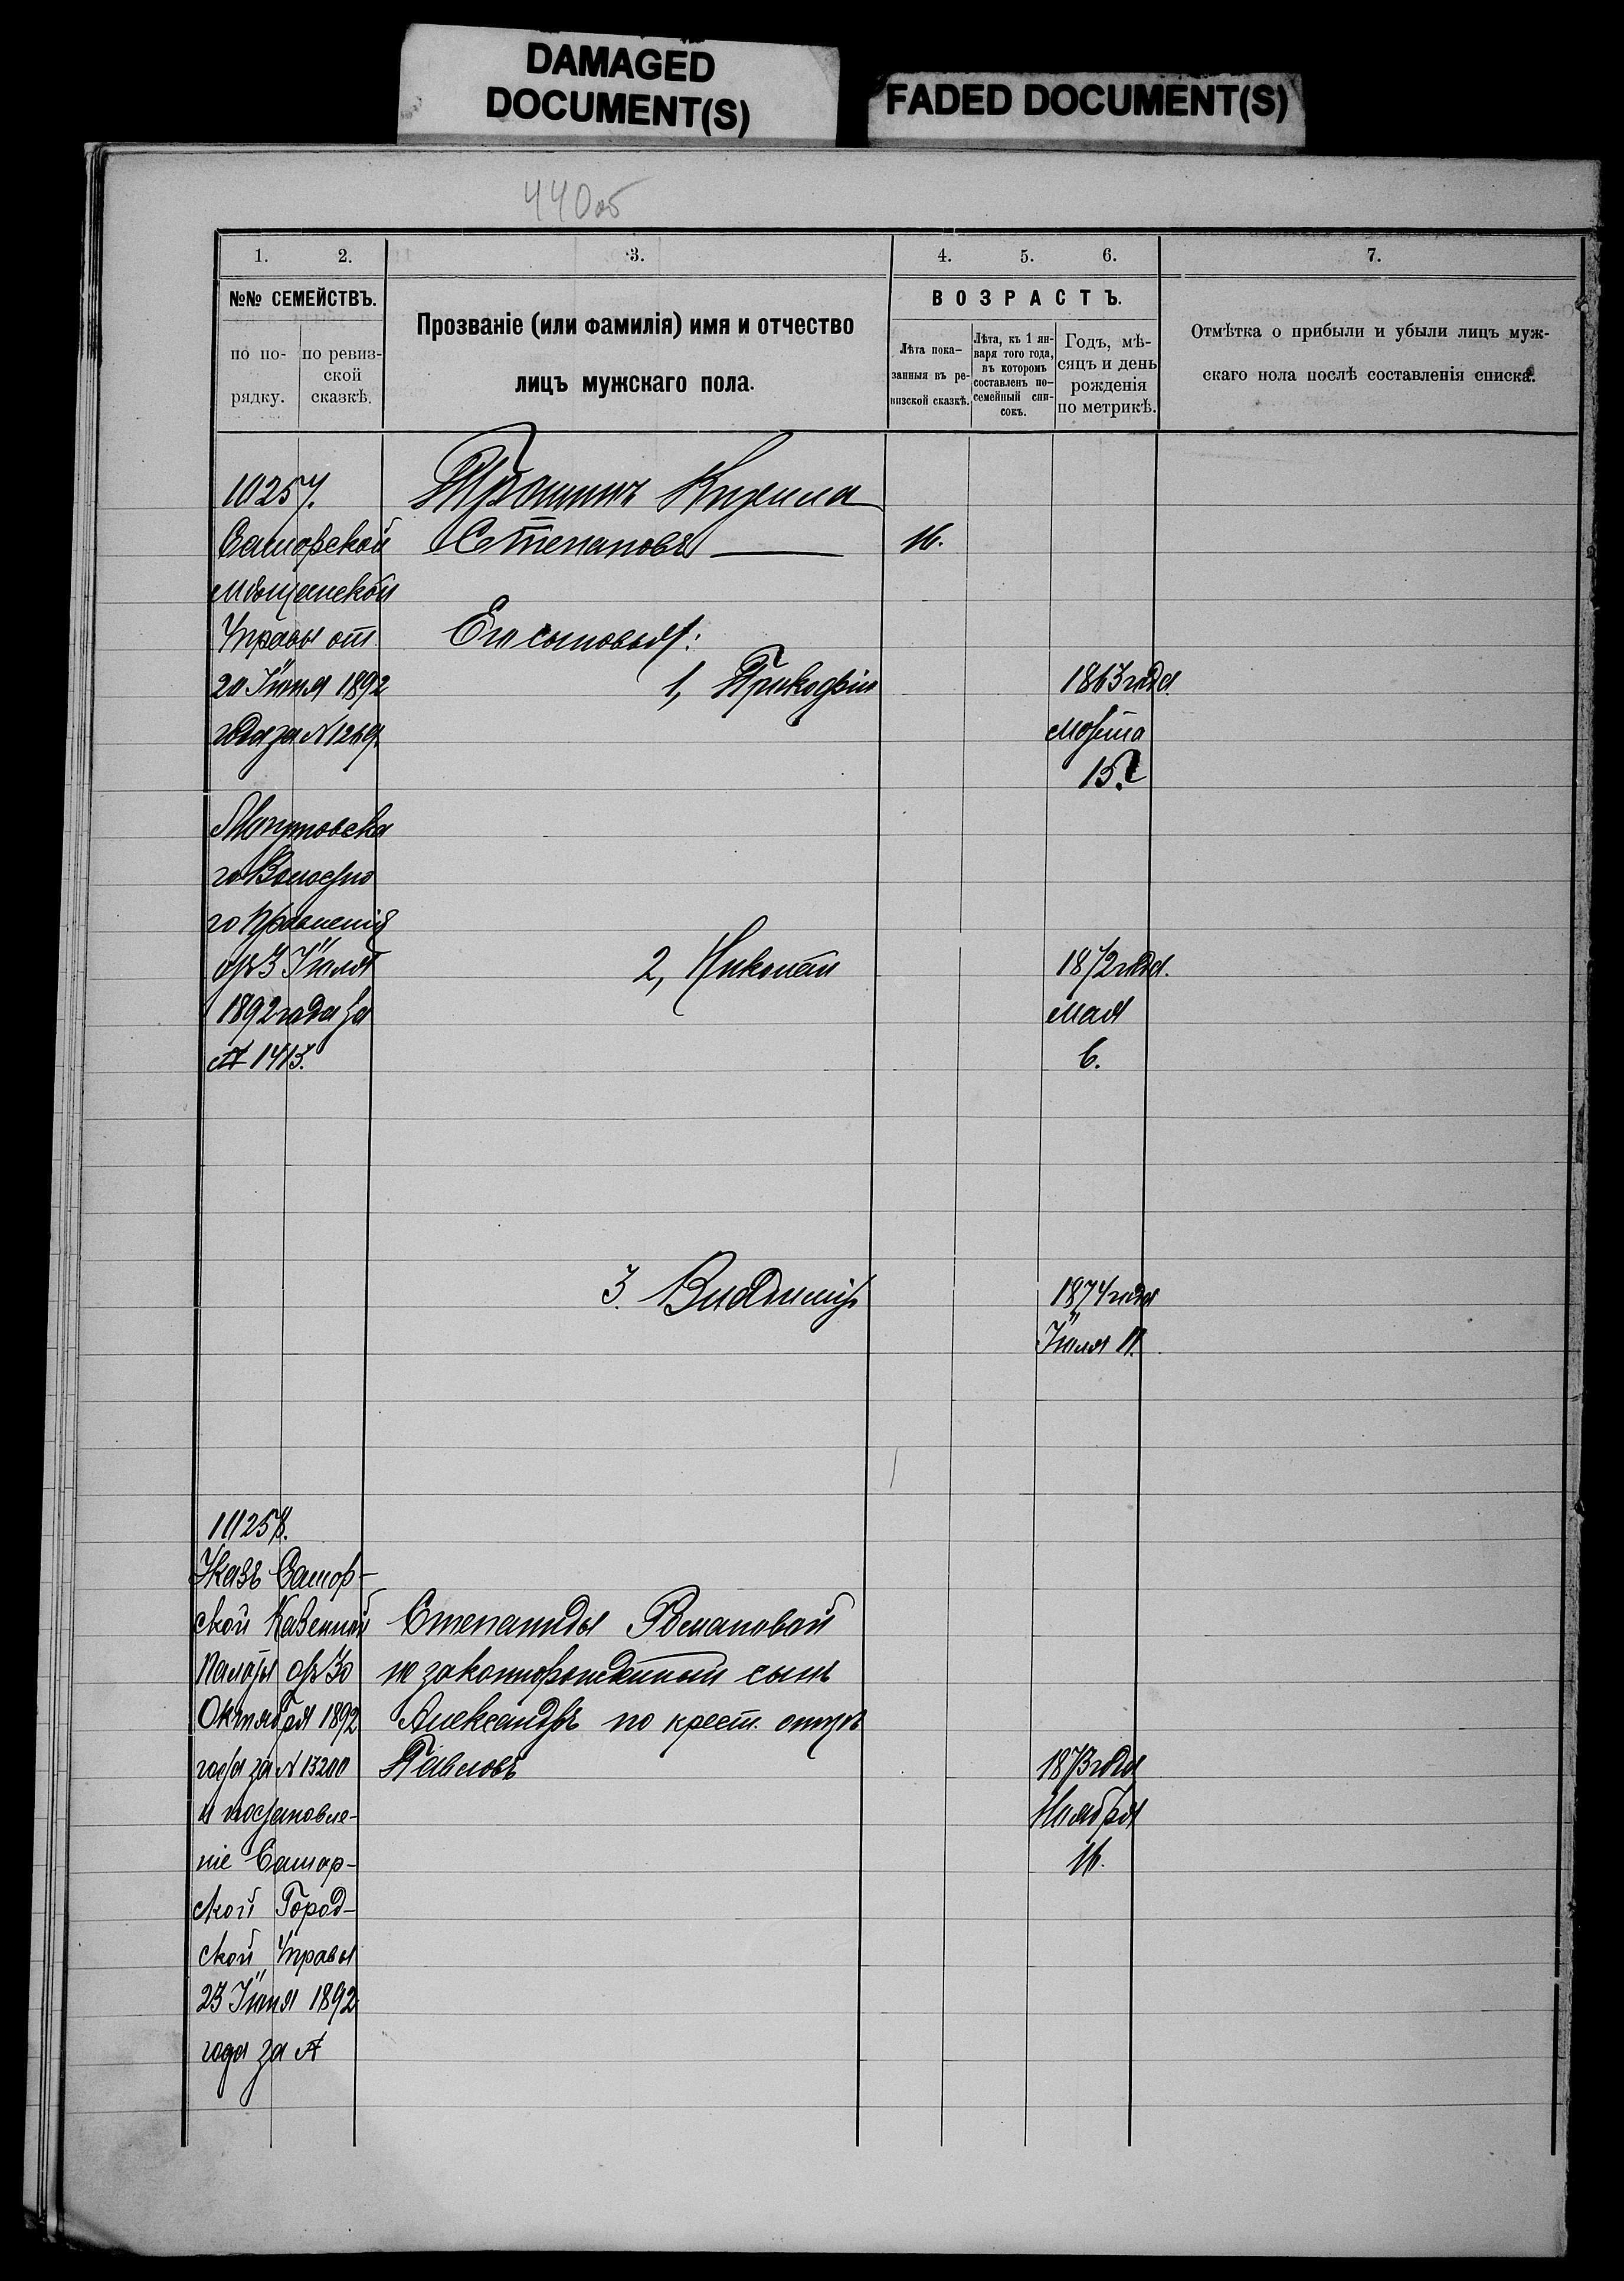 DAMAGED
DOCUMENT(S)
FADED DOCUMENT(S)
440об
1. 2. 3. 4. 5. 6. 7.
№№ СЕМЕЙСТВЪ.
по по-
рядку.
по ревиз-
ской
сказкѣ.
Прозваніе (или фамилія) имя и отчество
лицъ мужскаго пола.
ВОЗРАСТЪ.
Лѣта пока-
занныя въ ре-
визской сказкѣ.
Лѣта, къ 1 ян-
варя того года,
въ которомъ
составленъ по-
семейный спи-
сокъ.
Годъ, мѣ-
сяцъ и день
рожденія
по метрикѣ.
Отмѣтка о прибыли и убыли лицъ муж-
скаго пола послѣ составленія списка.
10257.
Самарской
мѣщанской
Управы от
20 Іюня 1892
года за №
Трошинъ Кирила
Степановъ 16.
Его сыновья:
1, Прокофій 1863 года
марта
15.
го Волостно
го Правленія
отъ 3 Іюля
1892 года за
№ 1413.
2, Николай 1872 года.
мая
6.
3. Владиміръ 1874 года
Іюля 11.
10258.
Указъ Самар-
ской Казенной
Палаты отъ 30
Октября 1892
года за № 13200
и постановле-
ніе Самар-
ской Город-
ской Управы
23 Іюня 1892
года за №
Степаниды Романовой
не законнорожденный сынъ
Александръ по крест. отцу
Павловъ 1873 года
Ноября
16.